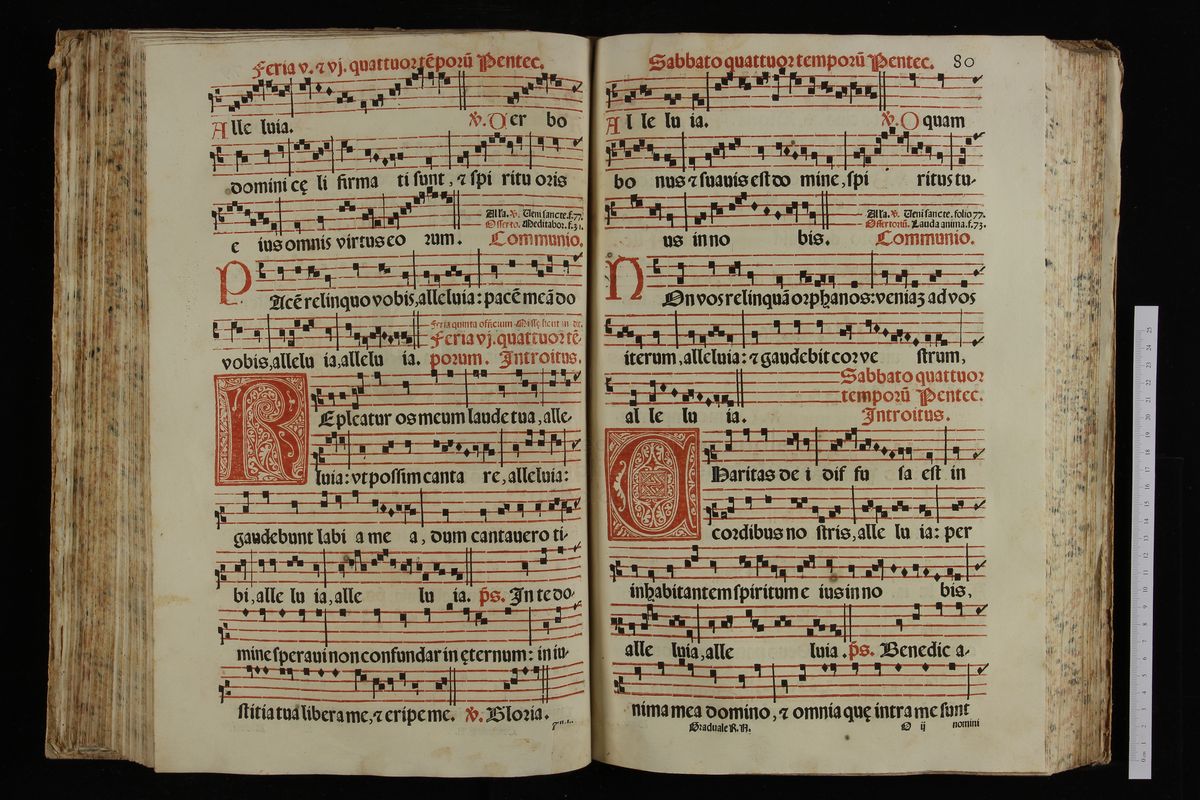 Feria v. ⁊ vj. quattuor tēporū Pentec.
Alle luia. ℣. Ver bo
domini cę li firma ti sunt, ⁊ spi ritu oris
e ius omnis virtus eo rum.
All'a. ℣. Veni sancte. f.77.
Offerto. Meditabor. f.31.
Communio.
PAcē relinquo vobis, alleluia: pacē meā do
vobis, allelu ia, allelu ia.
Feria vj. quattuor tē
porum. Introitus.
REpleatur os meum laude tua, alle-
luia: vt possim canta re, alleluia:
gaudebunt labi a me a, dum cantauero ti-
bi, alle lu ia, alle lu ia. ps. In te do-
mine speraui non confundar in ęternum: in iu-
stitia tua libera me, ⁊ eripe me. ℣. Gloria.
Sabbato quattuor temporū Pentec. 80
Al le lu ia. ℣. O quam
bo nus ⁊ suauis est do mine, spi ritus tu-
us in no bis.
All'a. ℣. Veni sancte. folio 77.
Offertoriū. Lauda anima. f.73.
Communio.
NOn vos relinquā orphanos: veniaʒ ad vos
iterum, alleluia: ⁊ gaudebit cor ve strum,
al le lu ia.
Sabbato quattuor
temporū Pentec.
Introitus.
CHaritas de i dif fu sa est in
cordibus no stris, alle lu ia: per
inhabitantem spiritum e ius in no bis,
alle luia, alle luia. ps. Benedic a-
nima mea domino, ⁊ omnia quę intra me sunt
Graduale R.R. O ij nomini